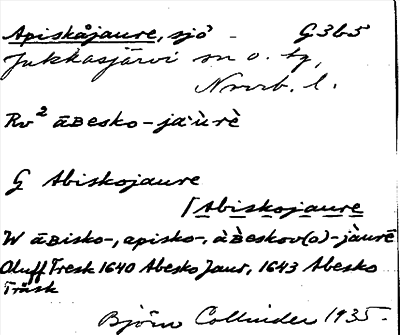 Apiskåjaure, sjö - G 3b5
Jukkasjärvi sn o. tg,
Norrb. l.
Rv² āBesko-jàùrè
G Abiskojaure
[Abiskojaure
W āBisko-, apisko-, àBeskov(o)-jàurē
Oluff Tresk 1640 Abesko Jaur, 1643 Abesko
Träsk
Björn Collinder 1935.